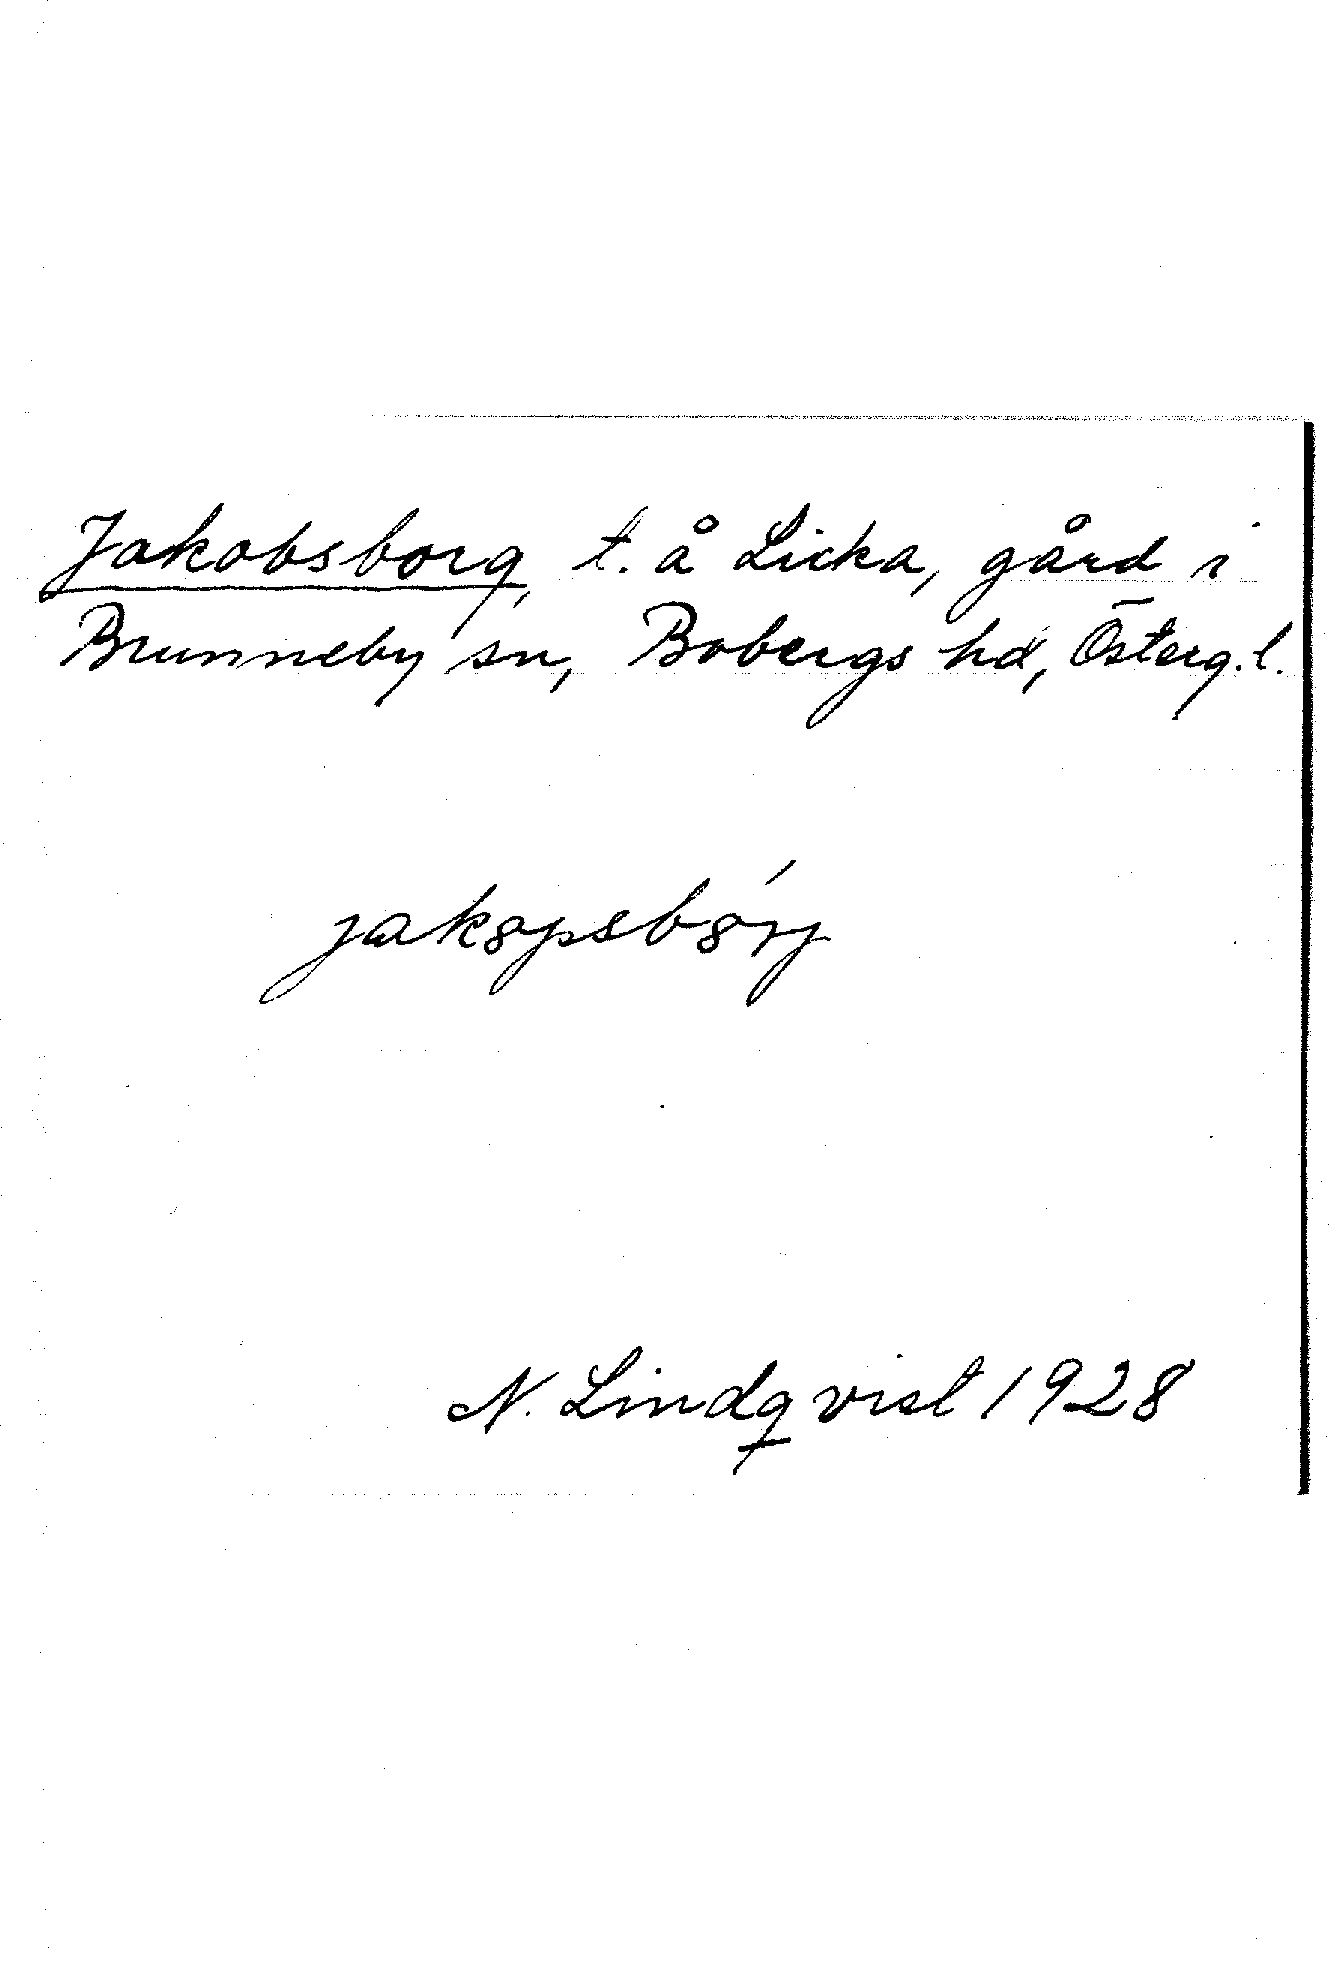 Jakobsborg, t. å Licka, gård i
Brunneby sn, Bobergs hd, Österg.l.
jakȣpsbȣ́rj
N. Lindqvist 1928